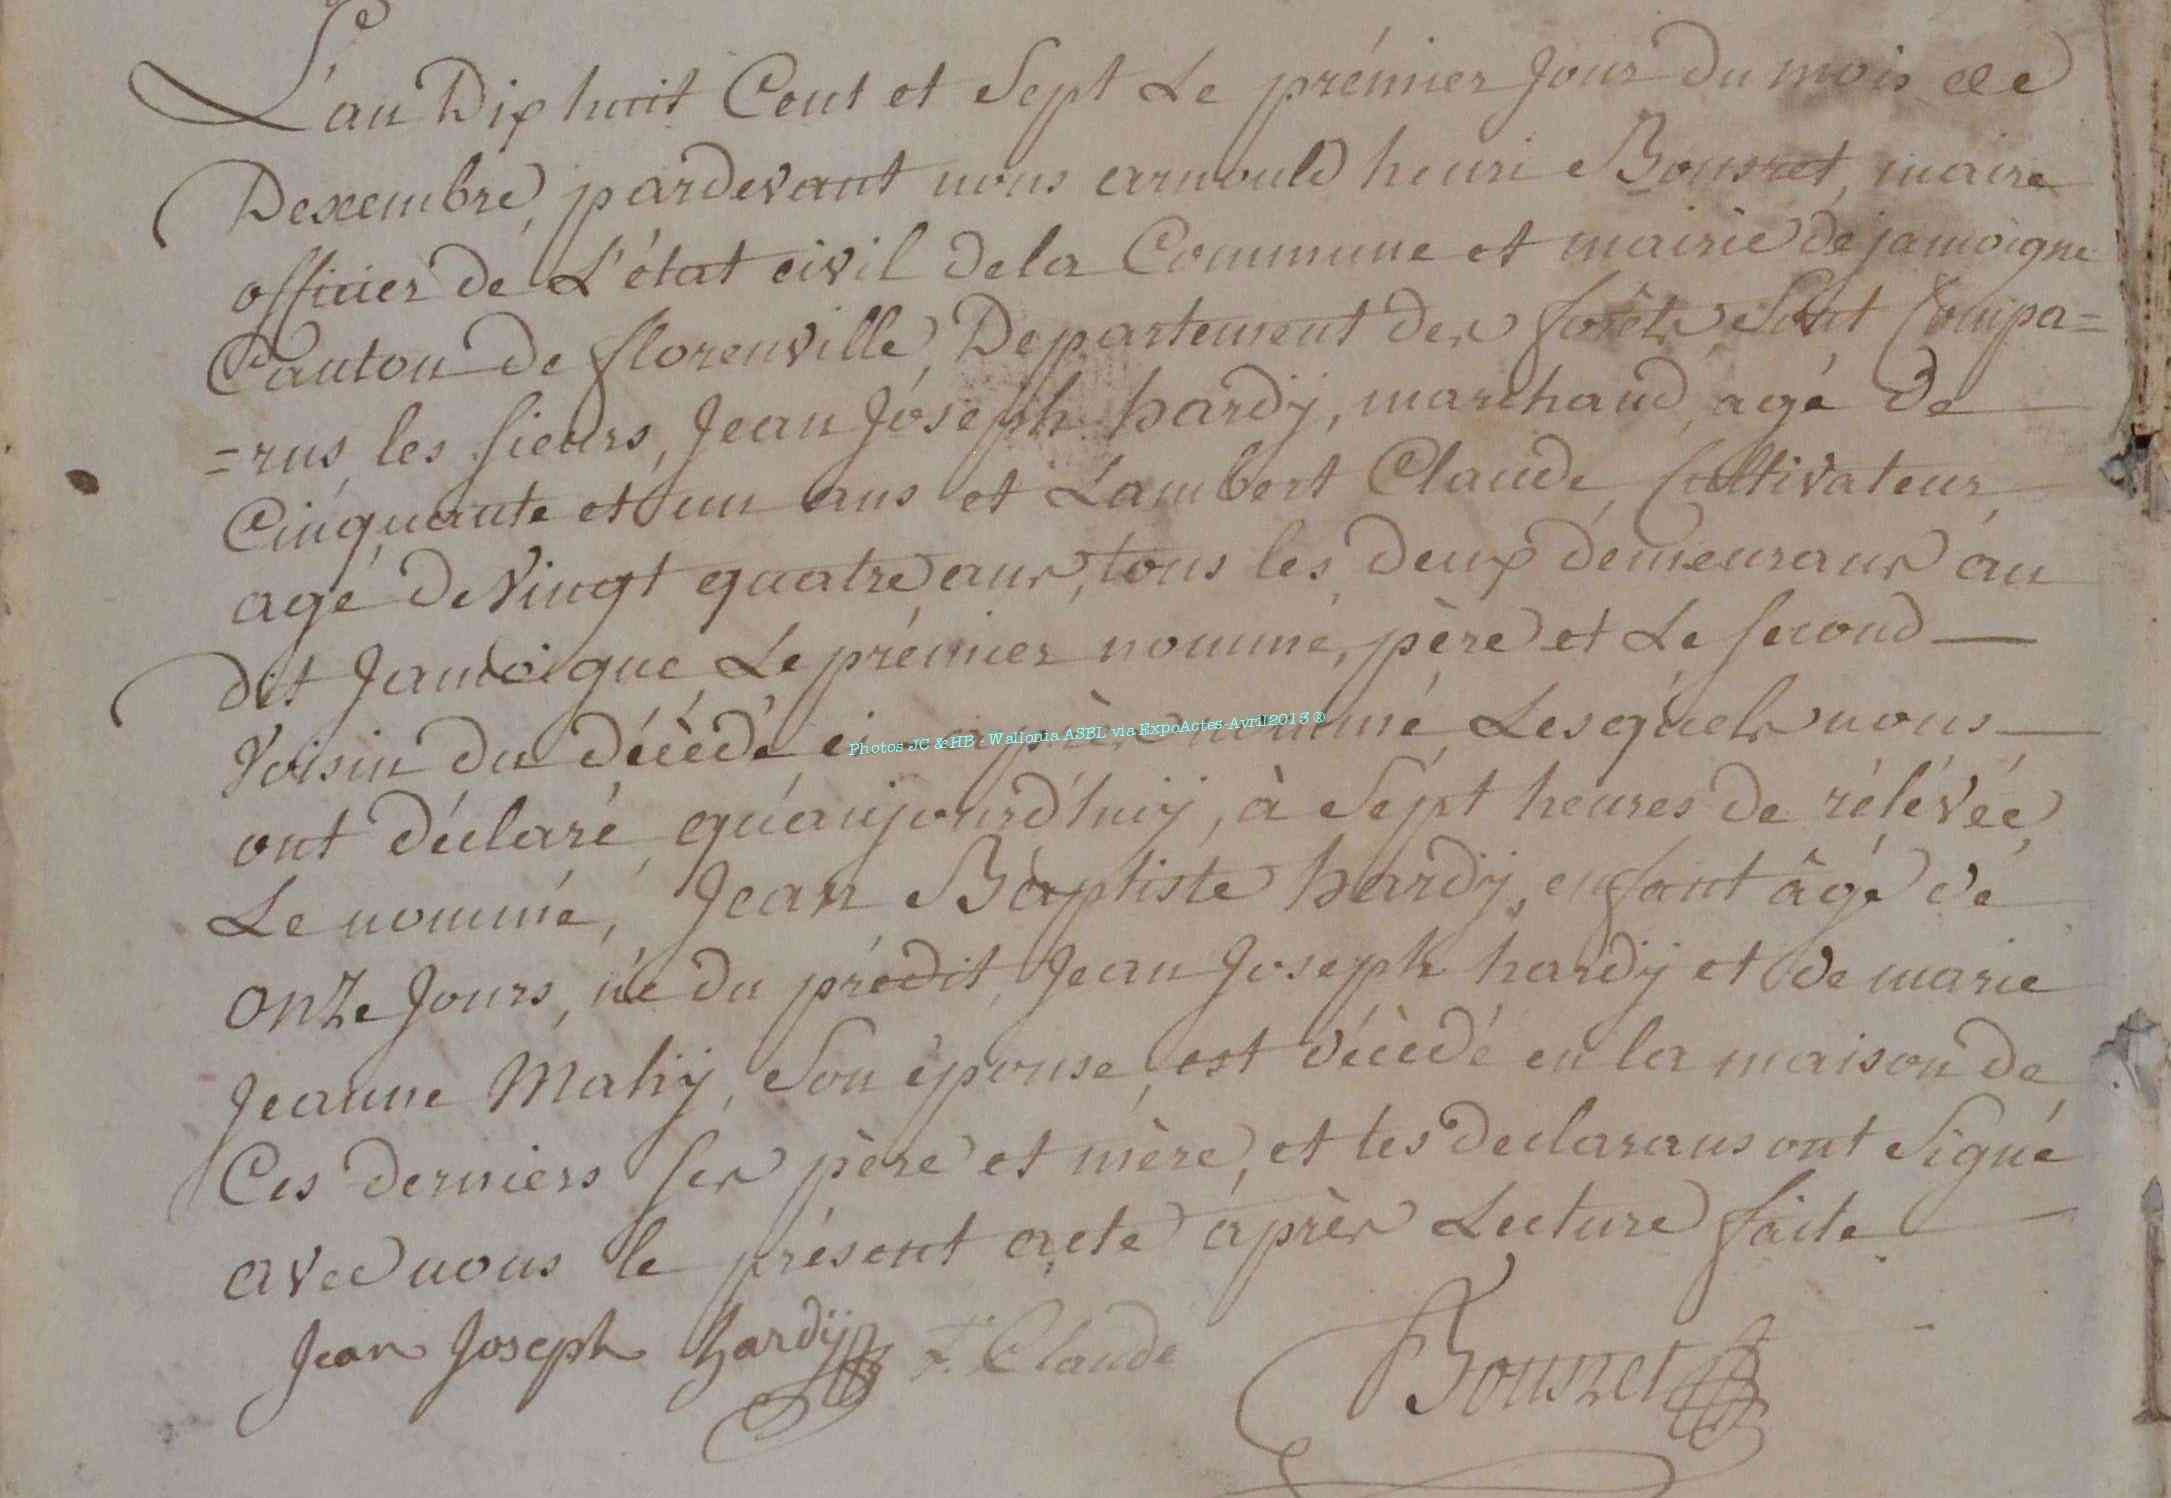 L'an Dix huit Cent et Sept Le prémier Jour Du mois de
Dexembre, pardevant nous arnould henri Bousret, maire
officier de L'état civil dela Commune et mairie de jamoigne
Canton de florenville, Departement des forêts, Sont Compa=
=rus, les sieurs, Jean Joseph hardÿ, marchand, agé De
Cinquante et un ans et Lambert Claude, Cultivateur,
agé De Vingt quatre ans, tous les deux demeurans au
dit Jamoigne, Le prémier nommé, père et Le second
Voisin du décèdé ci après nommé, Lesquels nous
ont déclaré, qu'aujourd'huÿ, à Sépt heures de rélévée,
Le nommé, Jean Baptiste hardÿ, enfant âgé dé
onze Jours, né Du prédit, Jean Joseph hardÿ et De marie
Jeanne Mahÿ, Son épouse, est décèdé en la maison de
Ces derniers ses père et mère, et les declarans ont Signé
avec nous le présent acte après Lecture faite.
Jean Joseph hardÿ Claude Bousret
Photos JC & HB - Wallonia ASBL via ExpoActes-Avril2013 ®